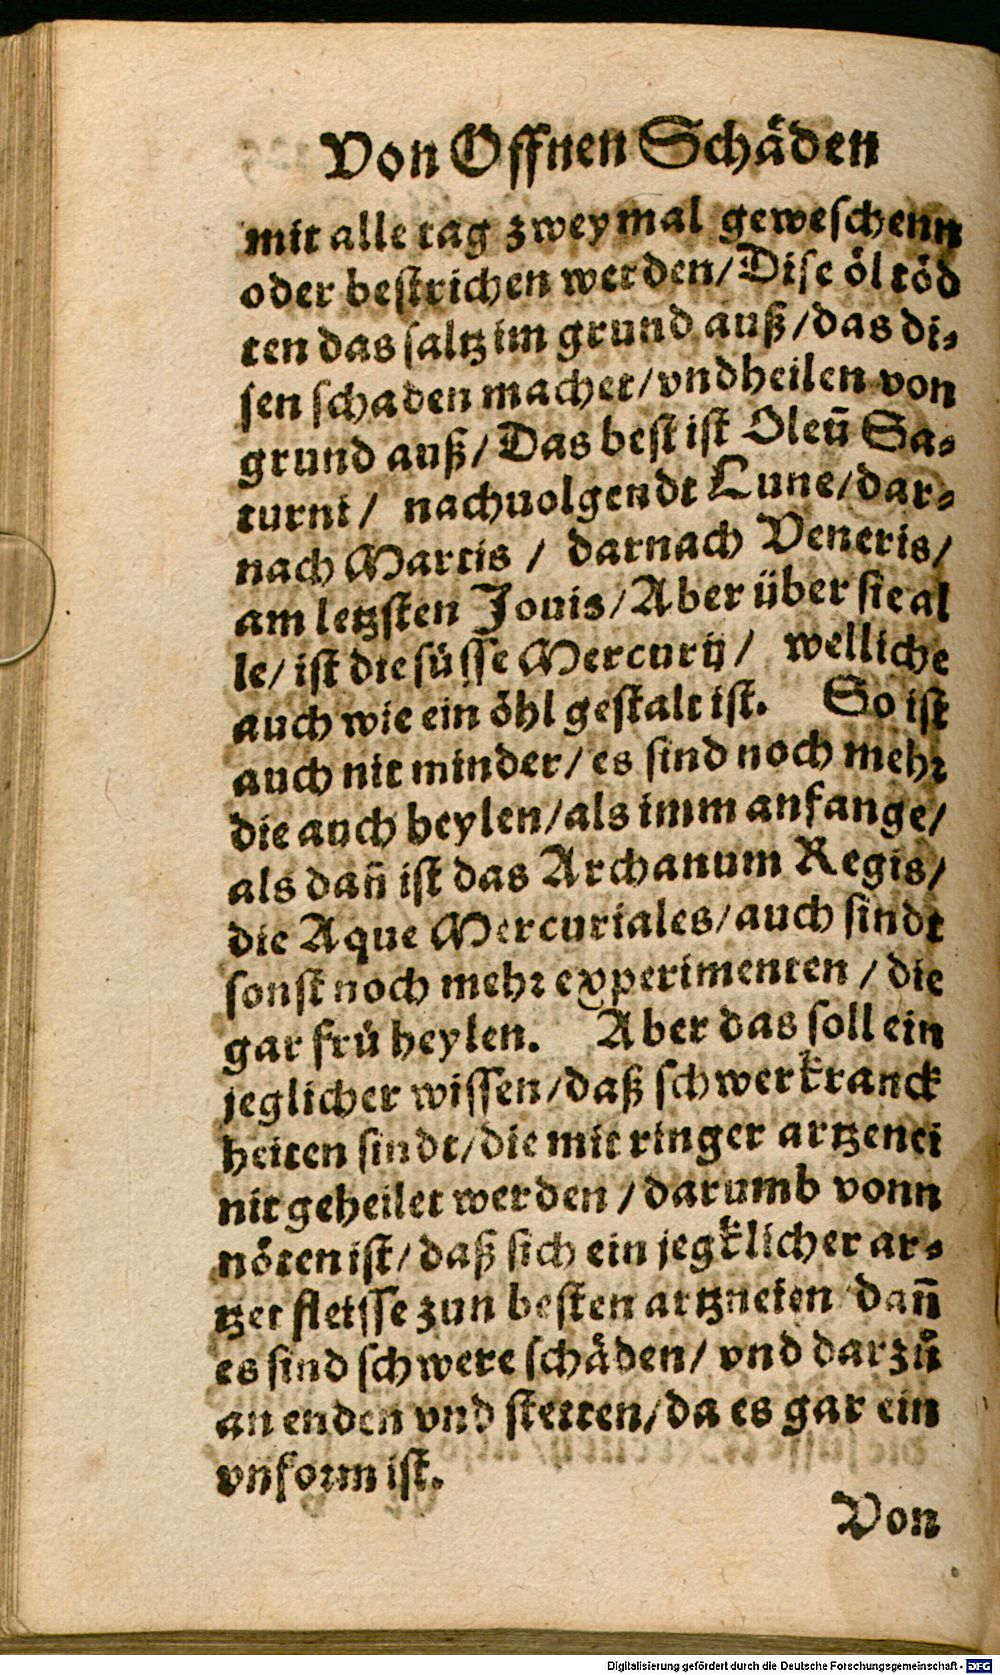 Von Offnen Schäden
mit alle tag zweymal geweschenn
oder bestrichen werden/Dise öl töd
ten das saltz im grund auß/das di-
sen schaden machet/vnd heilen von
grund auß/Das best ist Oleū Sa-
turni/ nachuolgendt Lune/dar-
nach Martis / darnach Veneris/
am letzsten Jouis/Aber über sie al
le/ist die süsse Mercurij/ welliche
auch wie ein öhl gestalt ist. So ist
auch nit minder/es sind noch mehr
die auch heylen/als imm anfange/
als dañ ist das Archanum Regis/
die Aque Mercuriales/auch sindt
sonst noch mehr experimenten /die
gar frů heylen. Aber das soll ein
jeglicher wissen/daß schwer kranck
heiten sindt/die mit ringer artzenei
nit geheilet werden /darumb vonn
nöten ist/daß sich ein jegklicher ar-
tzet fleisse zun besten artzneien dañ
es sind schwere schäden/ vnd darzů
an enden vnd stetten/da es gar ein
vnform ist.
Von
Digitalisierung gefördert durch die Deutsche Forschungsgemeinschaft - DFG